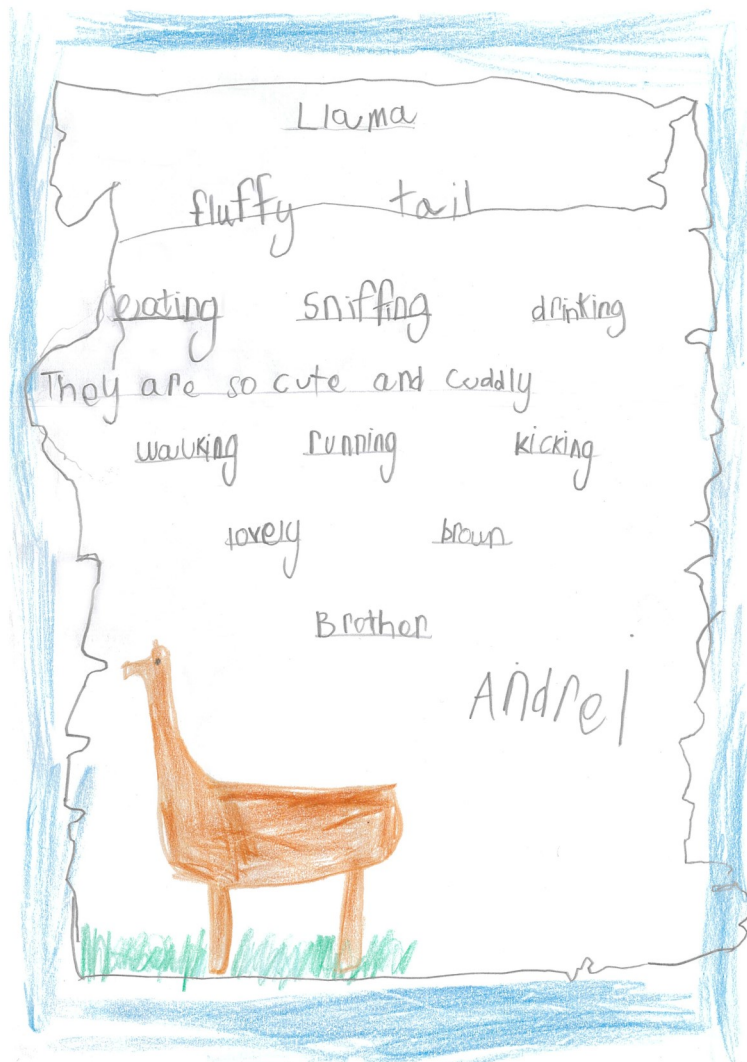 Llama
fluffy tail
eating sniffing drinking
They are so cute and cuddly
walking running kicking
lovely brown
Brother
Andrei